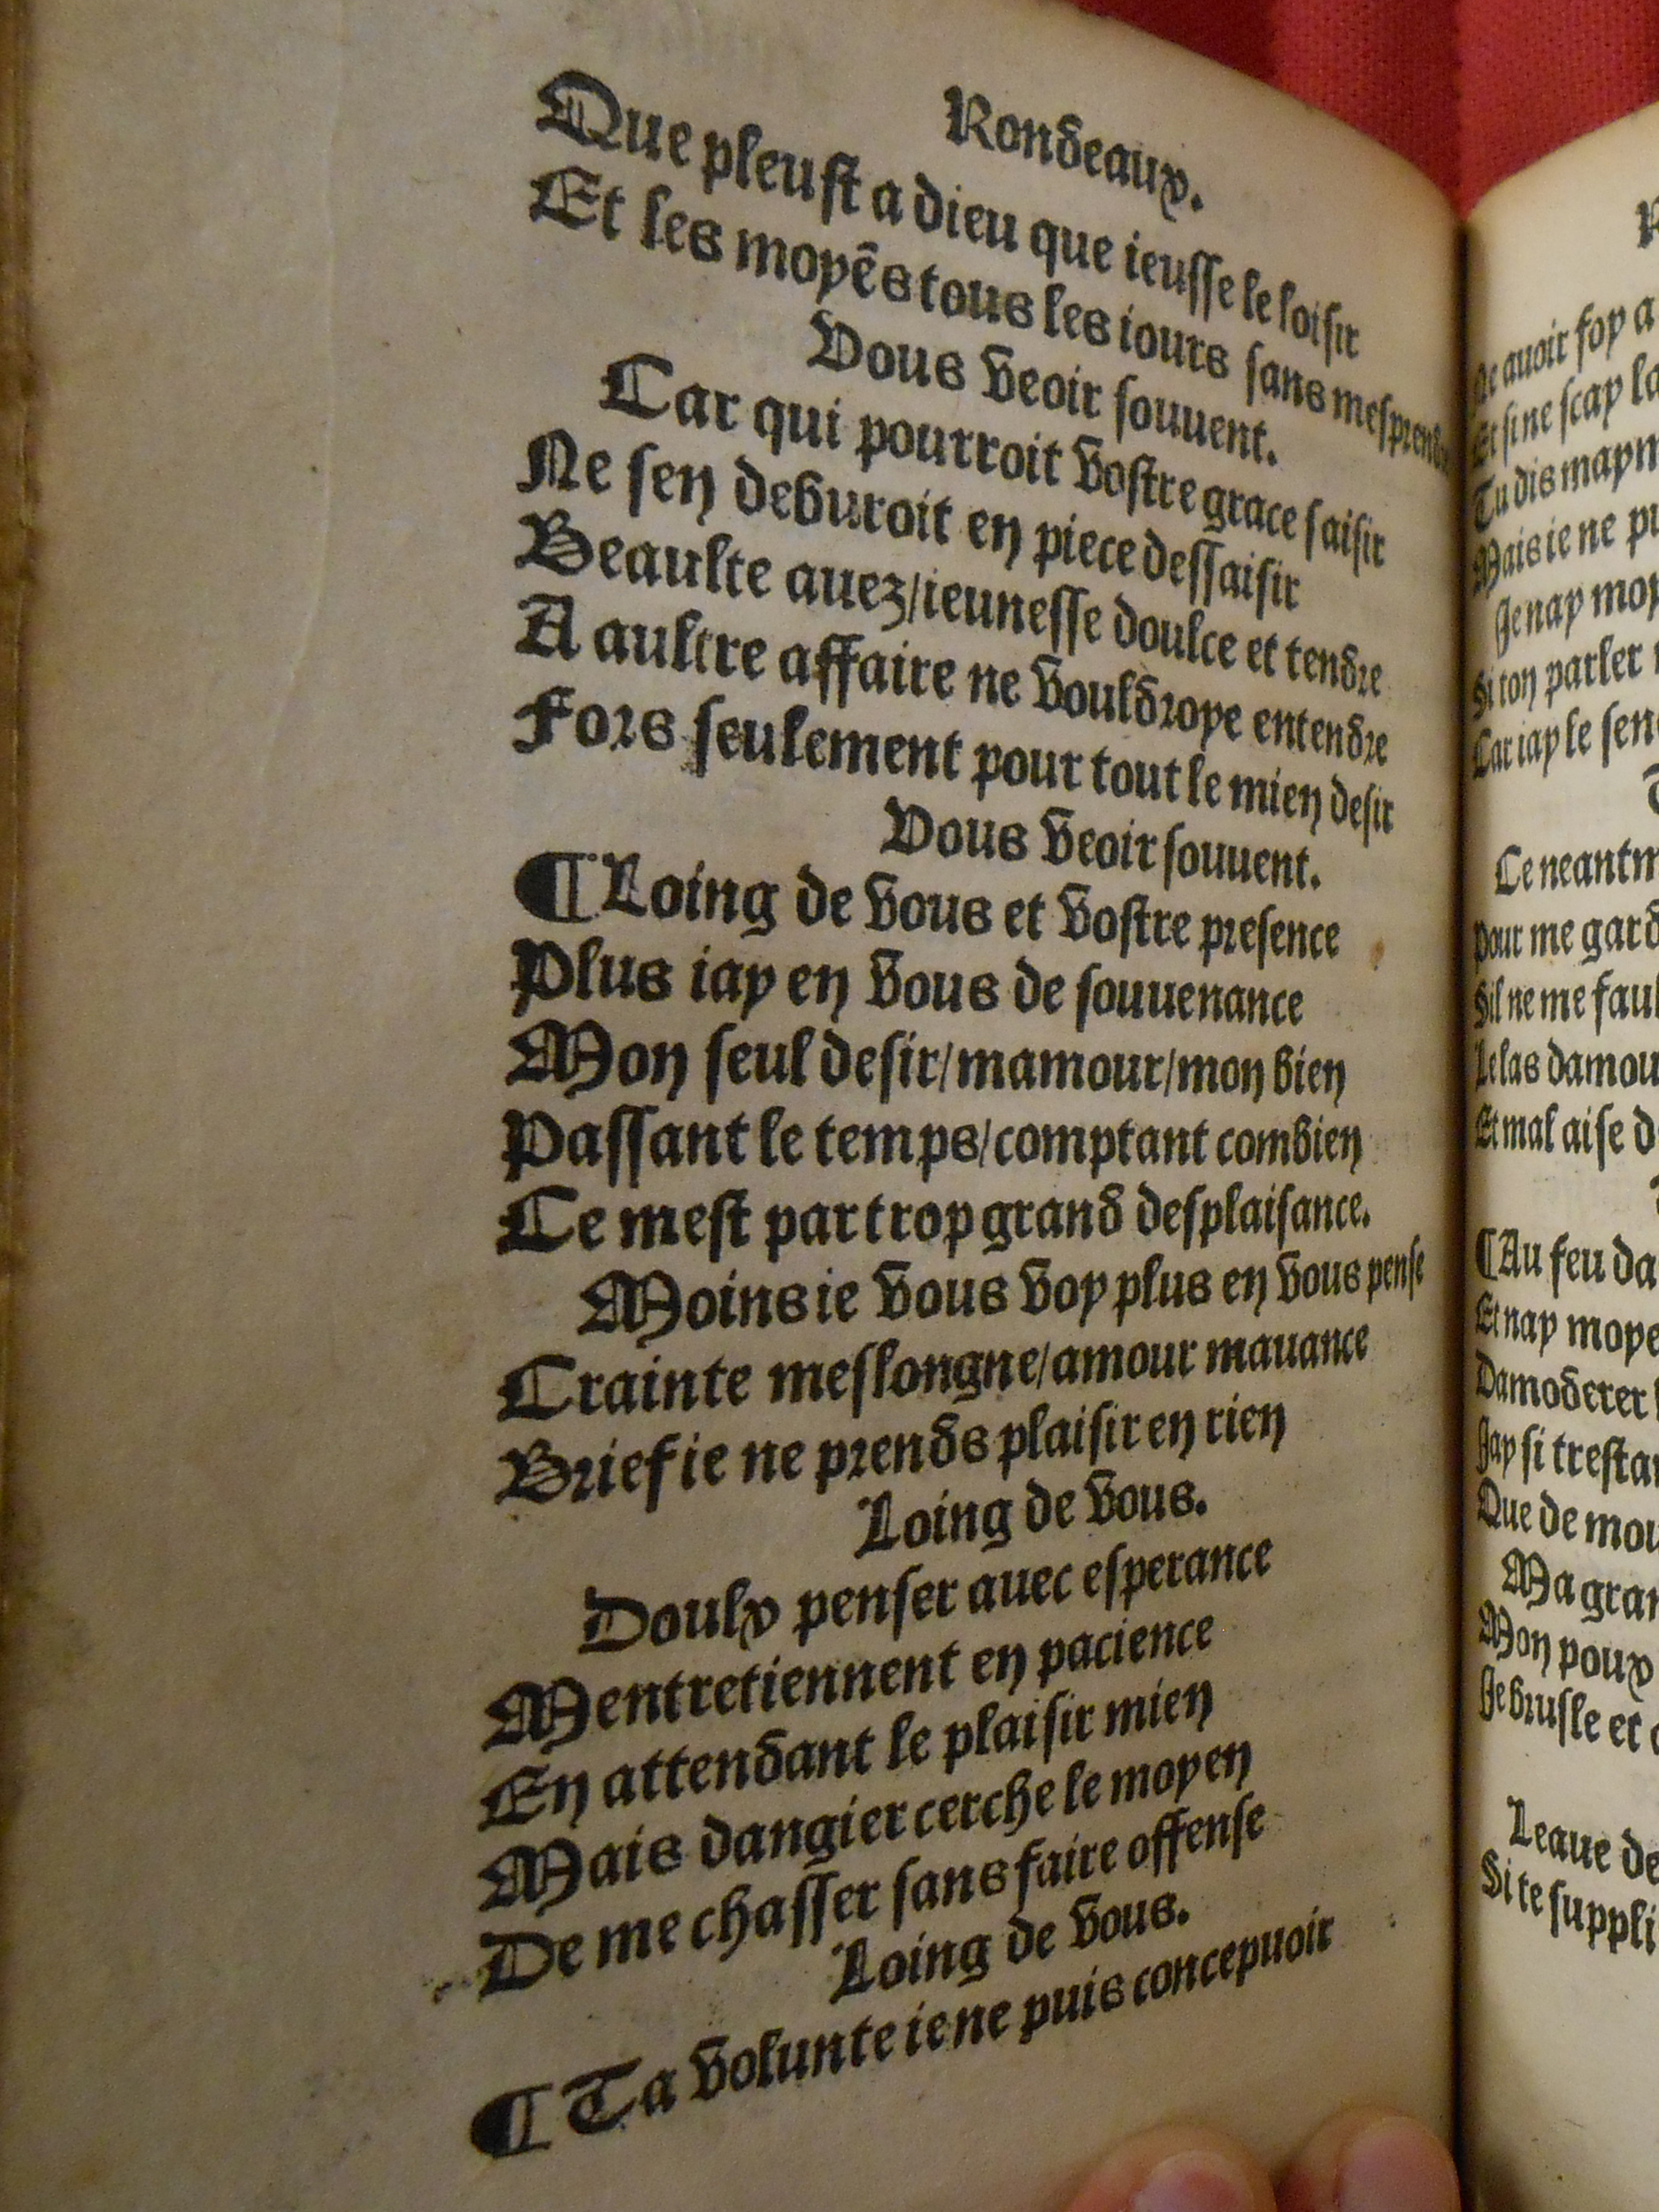 Rondeaux.
Que pleust a dieu que ieusse le loisir
Et les moyẽs tous les iours sans mesprendre
Vous veoir souuent.
Car qui pourroit vostre grace saisir
Ne sen deburoit en piece dessaisir
Beaulte auez/ieunesse doulce et tendre
A aultre affaire ne vouldroye entendre
Fors seulement pour tout le mien desir
Vous veoir souuent.
¶Loing de vous et vostre presence
Plus iay en vous de souuenance
Mon seul desir/mamour/mon bien
Passant le temps/comptant combien
Ce mest par trop grand desplaisance.
Moins ie vous voy plus en vous pense
Crainte meslongne/amour mauance
Brief ie ne prends plaisir en rien
Loing de vous.
Doulx penser auec esperance
Mentretiennent en pacience
En attendant le plaisir mien
Mais dangier cerche le moyen
De me chasser sans faire offense
Loing de vous.
¶Ta volunte ie ne puis concepuoir
Ne auoir foy a
Et si ne scay la
Tu dis may
Mais ie ne
Je nay
Si ton parler
Car iay le
Ce
Pour me
Sil ne me
Le las
Et mal aise
¶Au feu
Et nay
Damoderer
Jay si
Que de
Ma
Mon poux
Je brusle et
Leaue
Si te